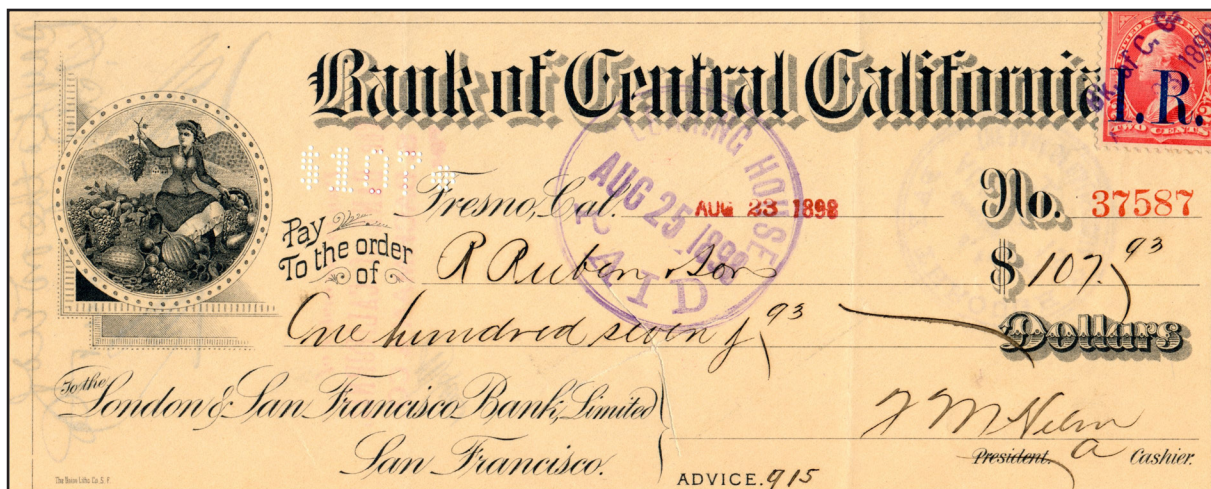 Bank of Central California
I. R.
TWO CENTS
$107
Fresno, Cal. AUG 23 1898
No. 37587
CLEARING HOUSE
AUG 25 1898
PAID
Pay To the order of R Ruben & Son
$ 107.93
One hundred seven & 93
Dollars
To the London & San Francisco Bank, Limited
San Francisco.
President. Cashier.
ADVICE. 915
The Union Litho. Co. S. F.